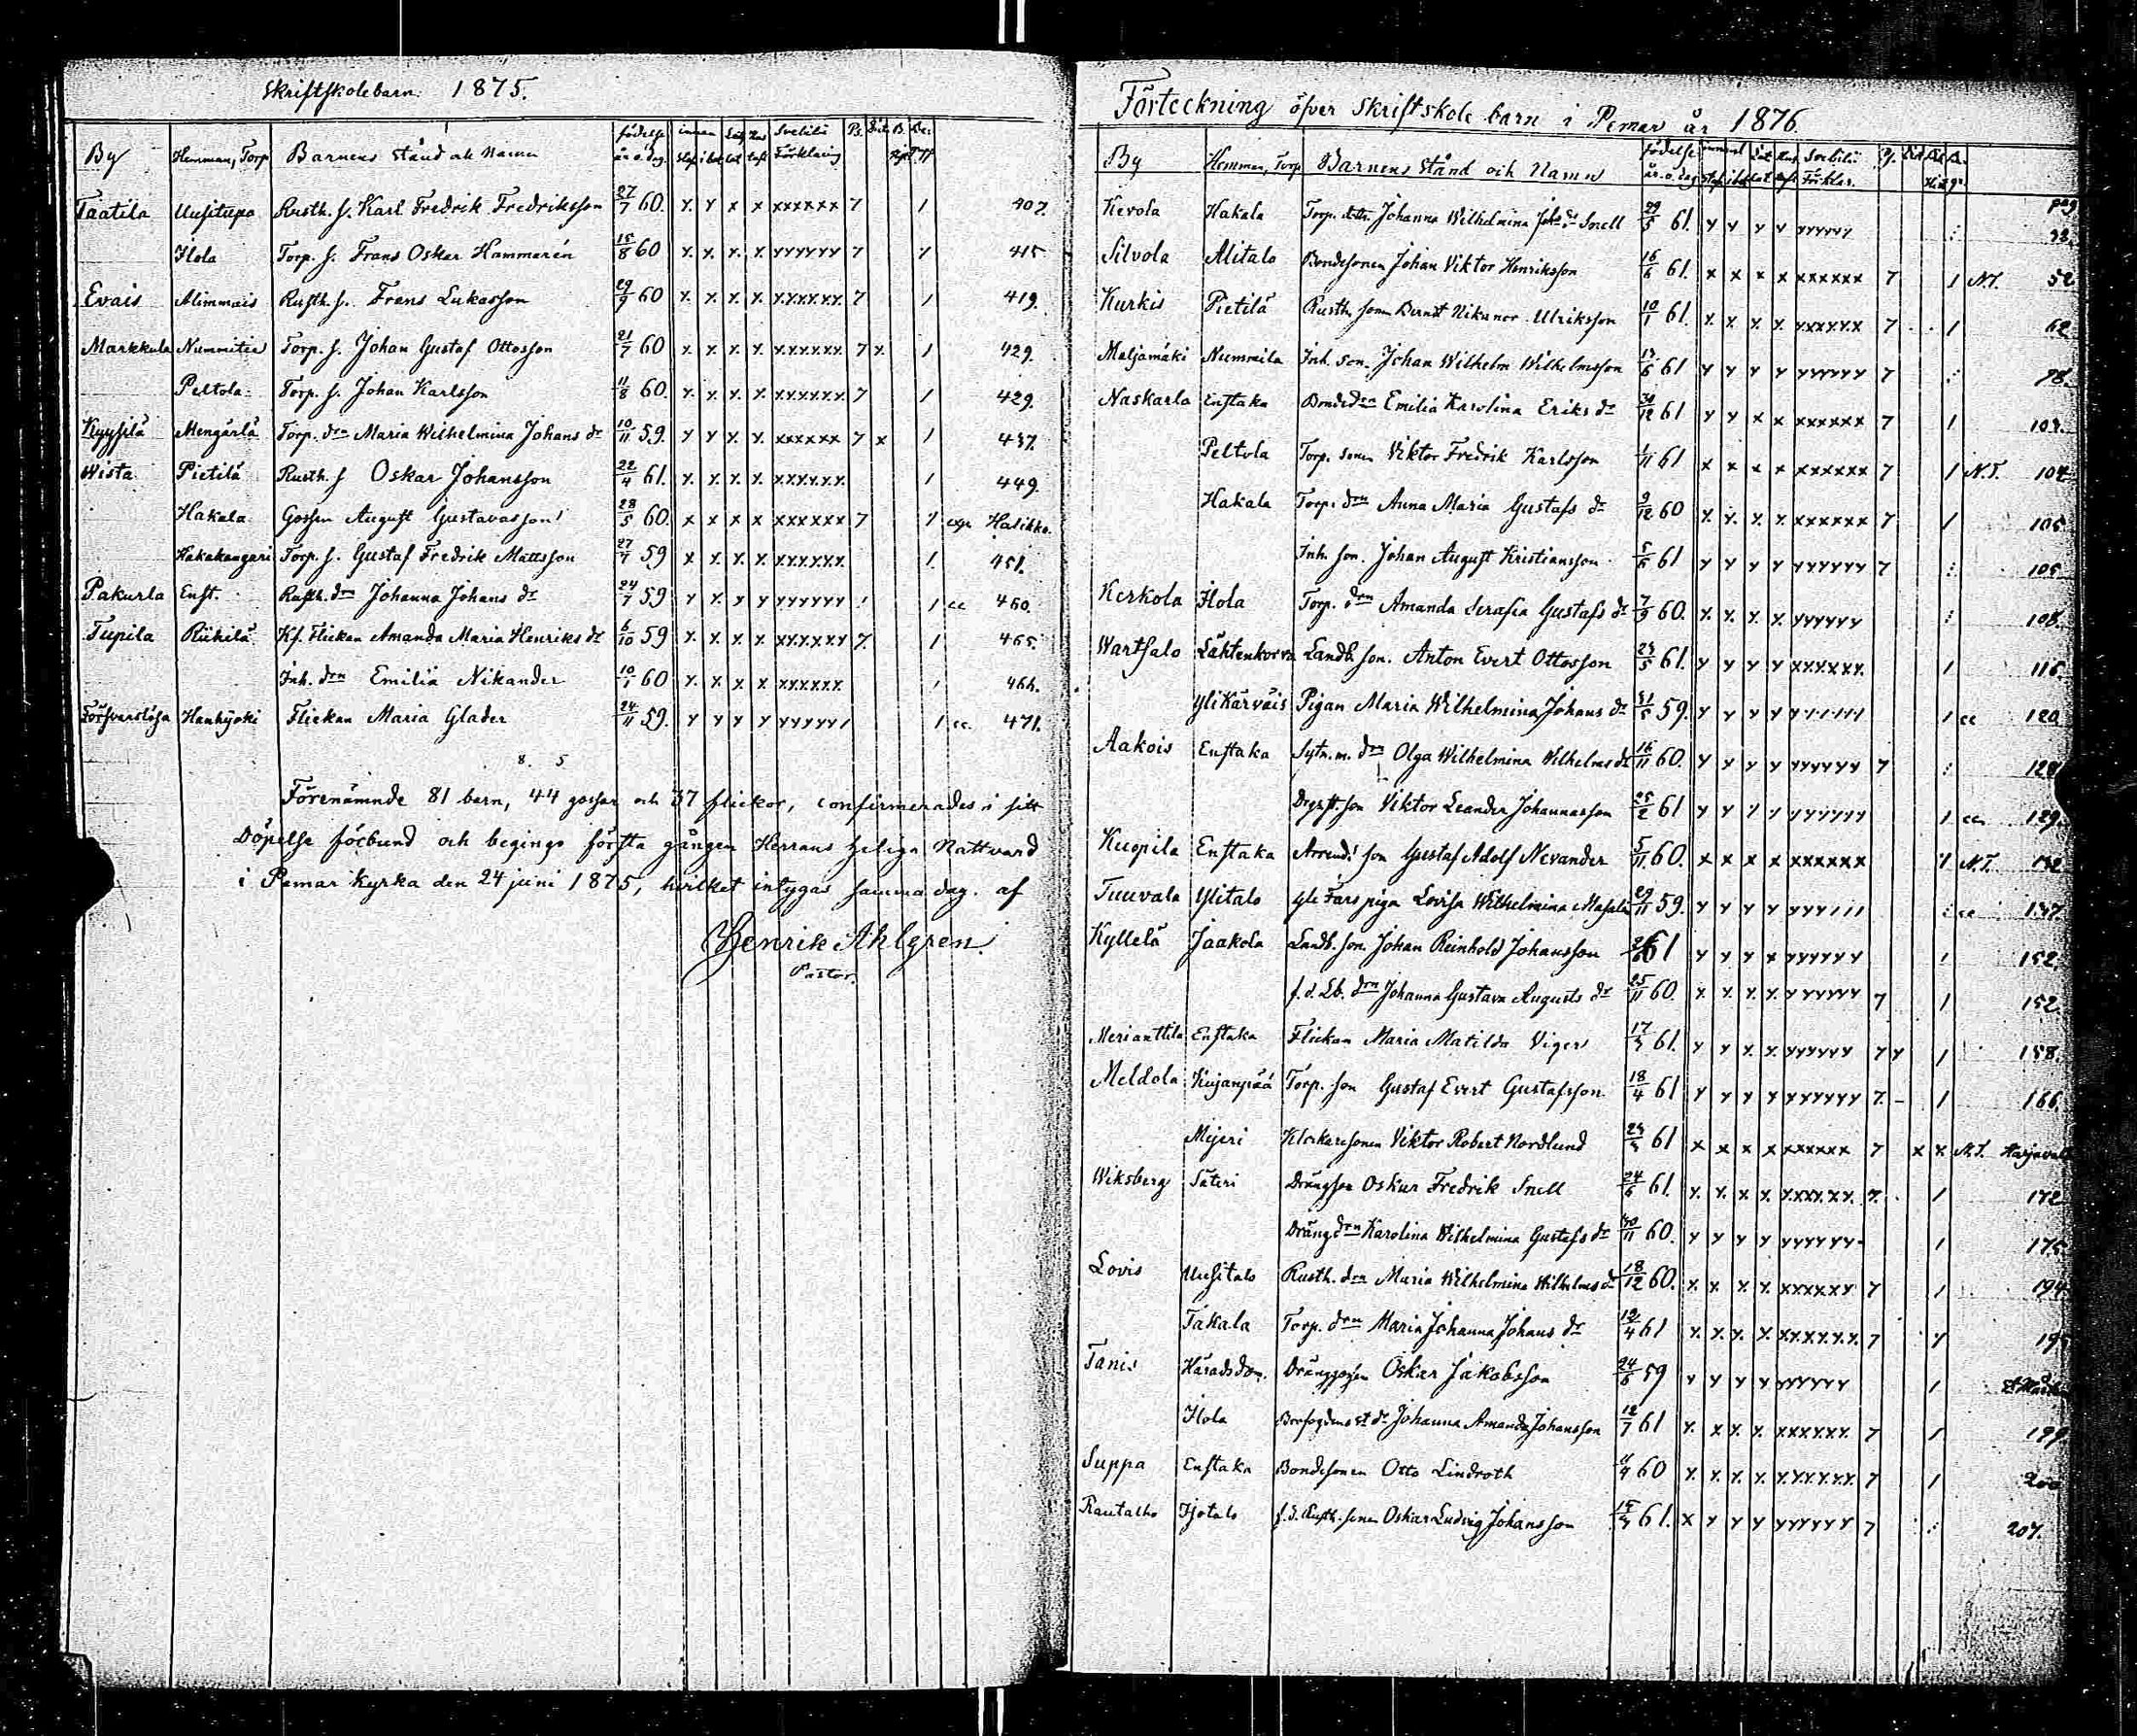 Skriftskolebarn. 1875.
By Hemman, Torp Barnens stånd och Namn födelse år o. dag. innan
Svebilii Förklaring
Taatila Uusitupa Rusth. s. Karl Fredrik Fredriksson 27/7 60. x. x x x xxxxxx 7 1 407.
Ilola Torp. s. Frans Oskar Hammarén 15/8 60 x. x. x. x. xxxxxx 7 1 415
Evais Alimmais Rusth. s. Frans Lukasson 29/9 60 x. x. x. x. xxxxxx. 7 1 419.
Markkula Nummitie Torp. s. Johan Gustaf Ottosson 21/7 60 x. x. x. x. xxxxxx 7 x. 1 429.
Peltola Torp. s. Johan Karlsson 11/8 60. x. x. x. x. xxxxxx. 7 1 429.
Kyysilä Mengärlä Torp. drn Maria Wilhelmina Johans dr 10/11 59. x x x. x. xxxxxx 7 x 1 437.
Wista Pietilä Rusth. s Oskar Johansson 22/4 61. x. x. x. x. xxxxxx. 1 449.
Hakala Gossen August Gustavasson 28/5 60. x x x x xxxxxx 7 1 Halikko.
Hakakangari Torp. s. Gustaf Fredrik Mattsson 27/7 59 x x. x. x. xxxxxx. 1. 451.
Pakurla Enst. Rusth. drn Johanna Johans dr 24/7 59 x x. x x xxxxxx 1 cc 460.
Tupila Riihilä Kf. Flickan Amanda Maria Henriks dr 6/10 59 x. x. x. x. xxxxxx 7. 1 465.
Inh. drn Emilia Nikander 10/1 60 x. x x x xxxxxx. 1 466.
Försvarslösa Hanhijoki Flickan Maria Glader 24/11 59. x x x x xxxxx1 1 cc. 471.
8. 5
Förenämnde 81 barn, 44 gossar och 37 flickor, confirmerades i sitt
Döpelse förbund och begingo första gången Herrans heliga Nattvard
i Pemar kyrka den 24 juni 1875, hvilket intygas samma dag. af
Henrik Ahlgren.
Pastor.
Förteckning öfver Skriftskole barn i Pemar år 1876.
By Hemman, Torp Barnens Stånd och Namn födelse år. o. dag
Svebilii Förklar.
pag.
Kevola Hakala Torp. dottr. Johanna Wilhelmina Johs dr Snell 29/5 61. x x x x xxxxxx
Silvola Alitalo Bondesonen Johan Viktor Henriksson 16/6 61. x x x x xxxxxx 7 1 N.T. 52
Kurkis Pietilä Rusth. sonen Berndt Nikanor Ulriksson 10/1 61. x. x. x. x. xxxxxx 7 1 62.
Maljamäki Nummila Inh. son. Johan Wilhelm Wilhelmsson 13/6 61 x x x x xxxxxx 7 78.
Naskarla Enstaka Bondedrn Emilia Karolina Eriks dr 30/12 61 x x x x xxxxxx 7 1 103.
Peltola Torp. sonen Viktor Fredrik Karlsson 1/11 61 x x x x xxxxxx 7 1 N.T. 104
Hakala Torp. drn Anna Maria Gustafs dr 9/12 60 x. x. x. x. xxxxxx 7 1 105
Inh. son. Johan August Kristiansson 5/5 61 x x x x xxxxxx 7 105
Kerkola Ilola Torp. drn Amanda Serafia Gustafs dr 7/9 60. x. x. x. x. xxxxxx 108.
Wartsalo Lähtenkorva Landb. son. Anton Evert Ottosson 23/5 61. x x x x xxxxxx. 1 116.
Ylikärväis Pigan Maria Wilhelmina Johans dr 31/5 59. x x x x 1 cc 120
Aakois Enstaka Sytn. m. drn Olga Wilhelmina Wilhelms dr 16/11 60. x x x x xxxxxx 7 128
son Viktor Leander Johannasson 25/2 61 x x 1 cc 129.
Kuopila Enstaka Arrend. son Gustaf Adolf Nevander 5/11 60. x x x x xxxxxx 1 N.T. 132
Tuuvala Ylitalo Lovisa Wilhelmina 29/11 59. x x x x xxx111 cc 137
Kyllelä Jaakola Landb. son. Johan Reinhold Johansson 61 x x x x xxxxxx 1 152.
f. d. Lb. drn Johanna Gustava Augusts dr 25/11 60. x. x. x. x. xxxxxx 7 1 152.
Merianttila Enstaka Flickan Maria Matilda Viger 17/3 61. x x x. x. xxxxxx 7 x 1 158.
Meldola Kujanpää Torp. son Gustaf Evert Gustafsson 18/4 61 x x x x xxxxxx 7. - 1 166.
Mijeri Klockaresonen Viktor Robert Nordlund 23/3 61 x x x x xxxxxx 7 x x N.T.
Wiksberg Säteri Drängson Oskar Fredrik Snell 24/6 61. x. x. x x. xxxxxx. 7. 1 172
Drängdrn Karolina Wilhelmina Gustafs dr 30/11 60. x x x x xxxxxx 1 175
Lovis Uusitalo Rusth. drn Maria Wilhelmina Wilhelms dr 18/12 60. x. x. x. x. xxxxxx 7 1 194.
Takala Torp. drn Maria Johanna Johans dr 12/4 61 x. x. x. x. xxxxxx. 7 1
Tanis Häradsdom. Dränggossen Oskar Jakobsson 24/6 59 x x x x xxxxxx 1
Ilola Johanna Amanda Johansson 12/7 61 x. x x. x. xxxxxx. 7 1 199
Suppa Enstaka Bondesonen Otto Lindroth 60 x. x. x. x. xxxxxx. 7 1 200
Rautalho Isotalo f. d. Rusth. sonen Oskar Ludvig Johansson 15/3 61. x x x x xxxxxx 7 207.